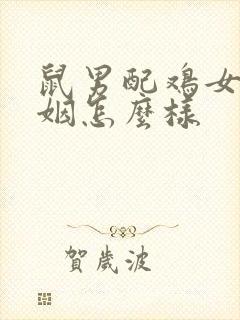 鼠男配鸡女
姻怎麼样
賀歲波